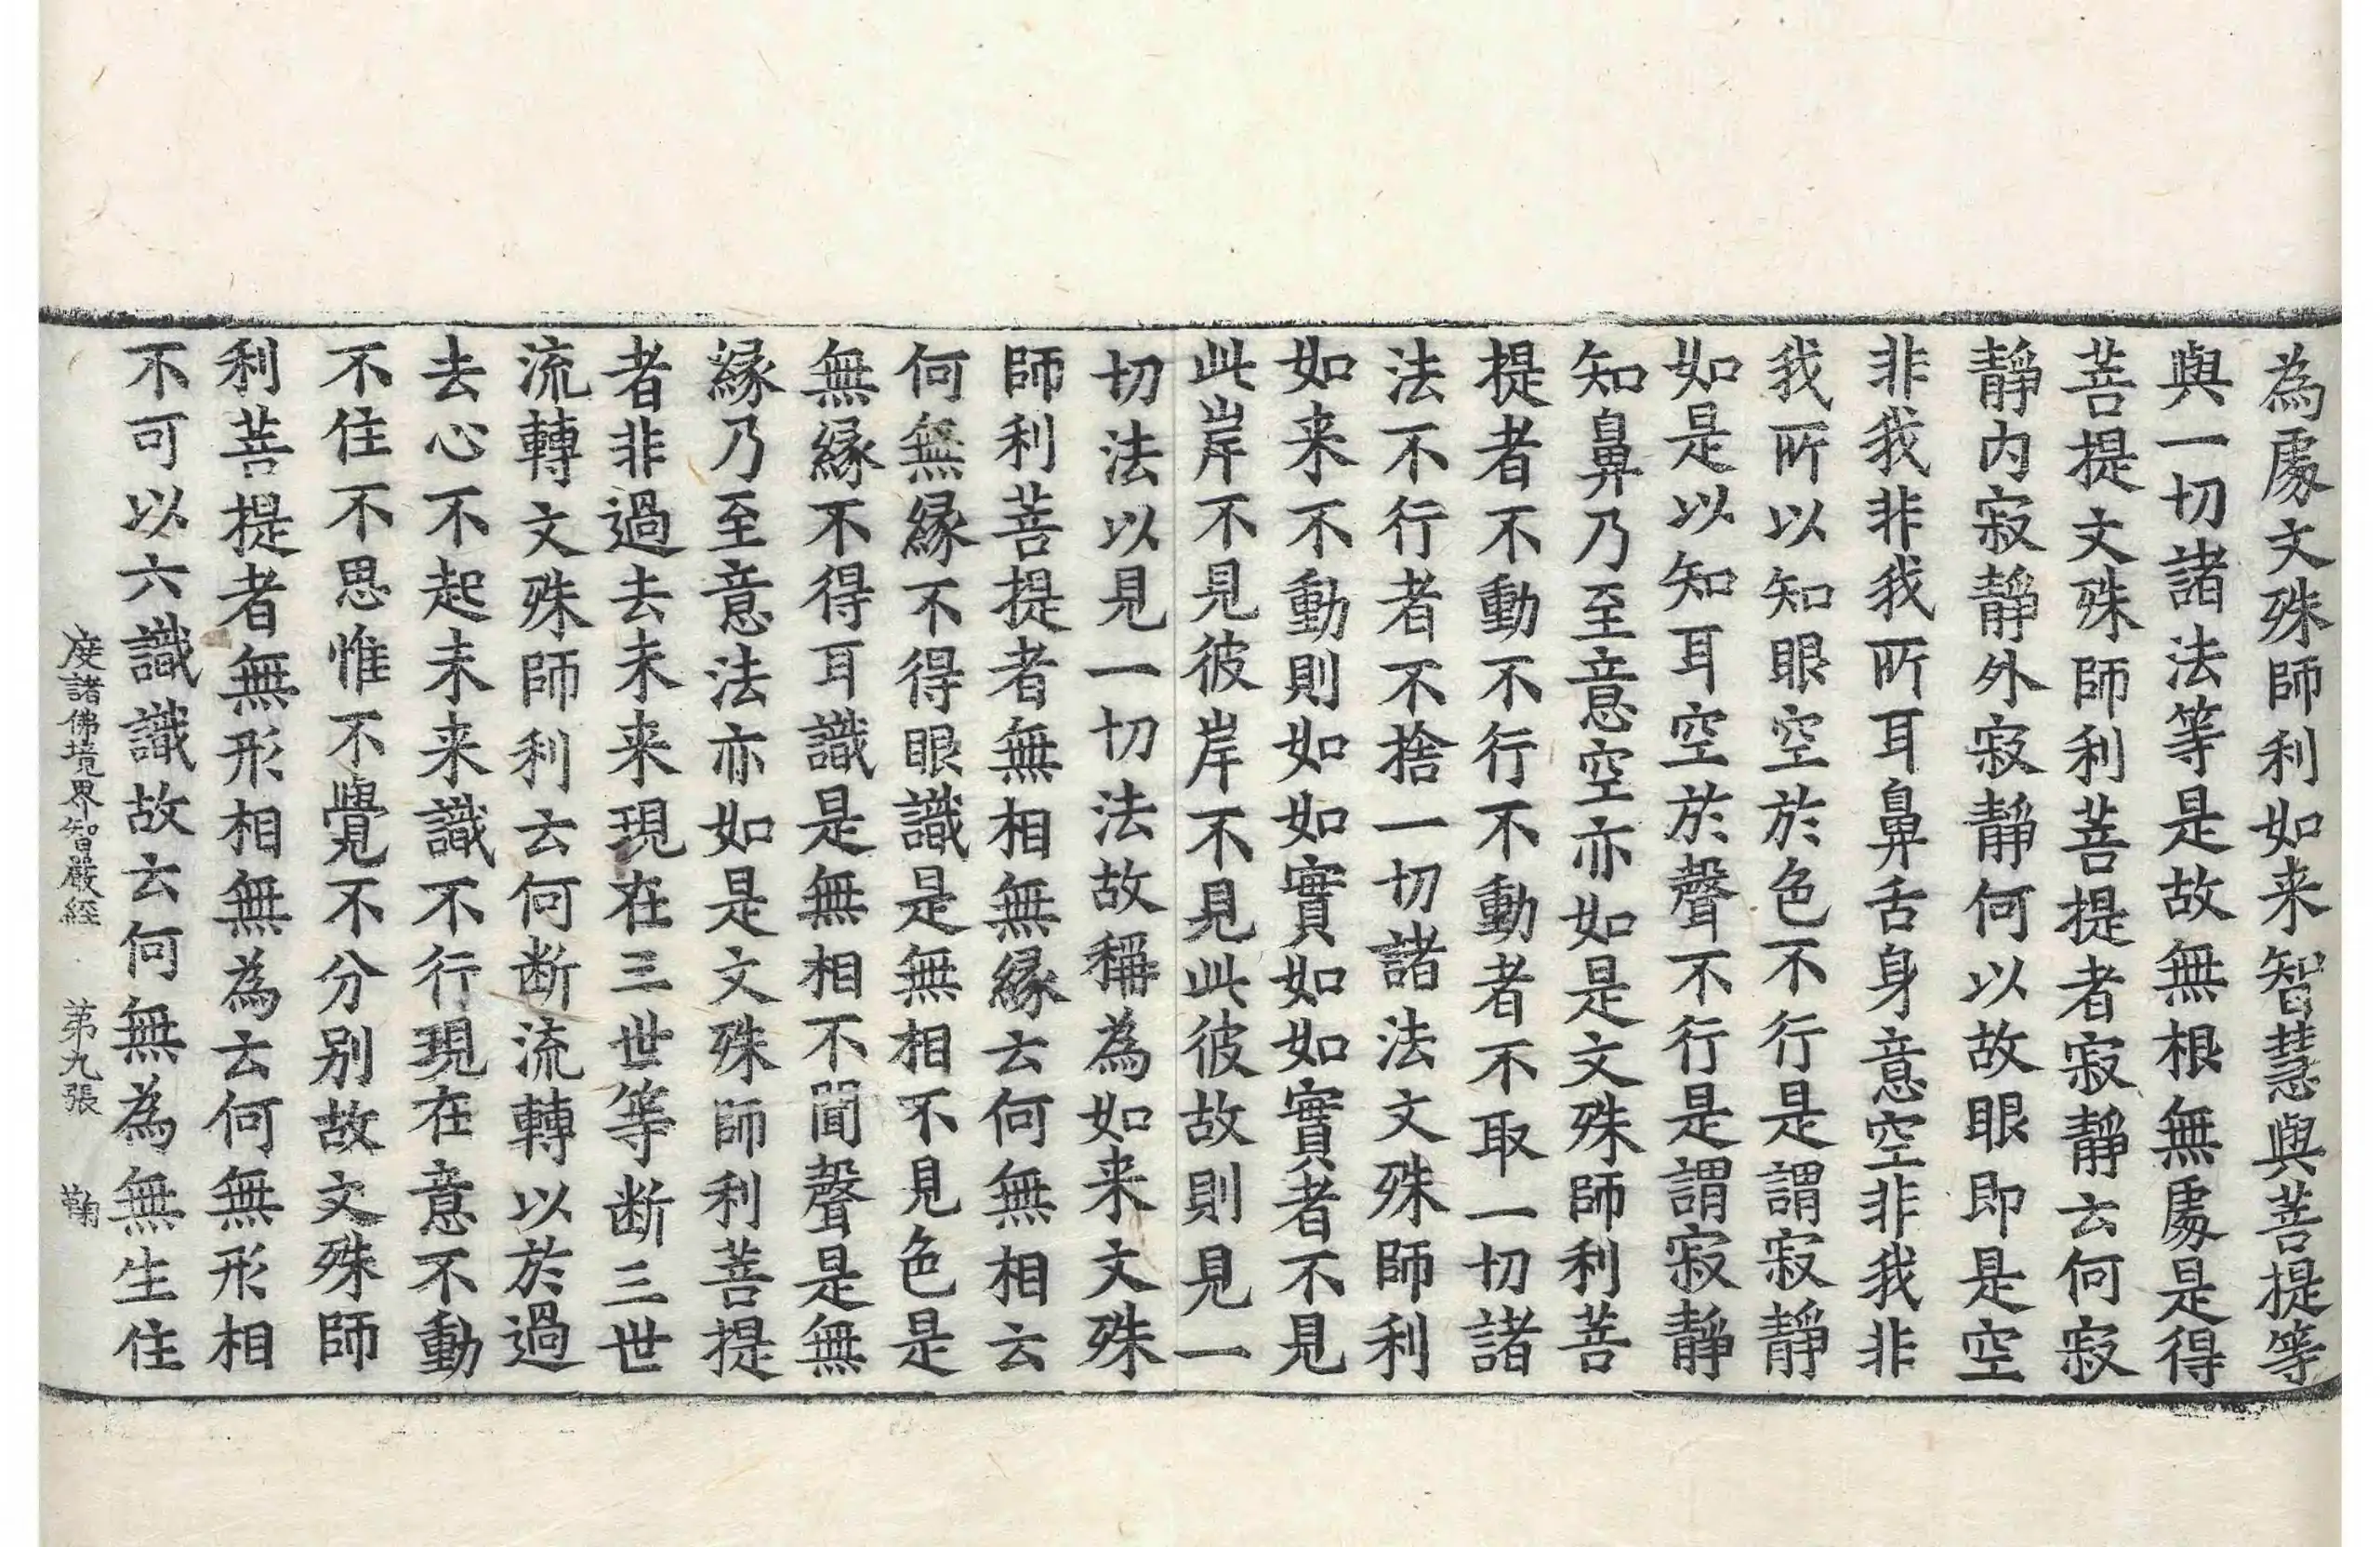 為處文殊師利如来智慧與菩提等
與一切諸法等是故無根無處是得
菩提文殊師利菩提者寂靜云何寂
靜内寂靜外寂靜何以故眼即是空
非我非我所耳鼻舌身意空非我非
我所以知眼空於色不行是謂寂靜
如是以知耳空於聲不行是謂寂靜
知鼻乃至意空亦如是文殊師利菩
提者不動不行不動者不取一切諸
法不行者不捨一切諸法文殊師利
如来不動則如如實如如實者不見
此岸不見彼岸不見此彼故則見一
切法以見一切法故稱為如来文殊
師利菩提者無相無縁云何無相云
何無縁不得眼識是無相不見色是
無縁不得耳識是無相不聞聲是無
縁乃至意法亦如是文殊師利菩提
者非過去未来現在三世等断三世
流轉文殊師利云何断流轉以於過
去心不起未来識不行現在意不動
不住不思惟不覺不分别故文殊師
利菩提者無形相無為云何無形相
不可以六識識故云何無為無生住
度諸佛境界智嚴經 第九張 鞠